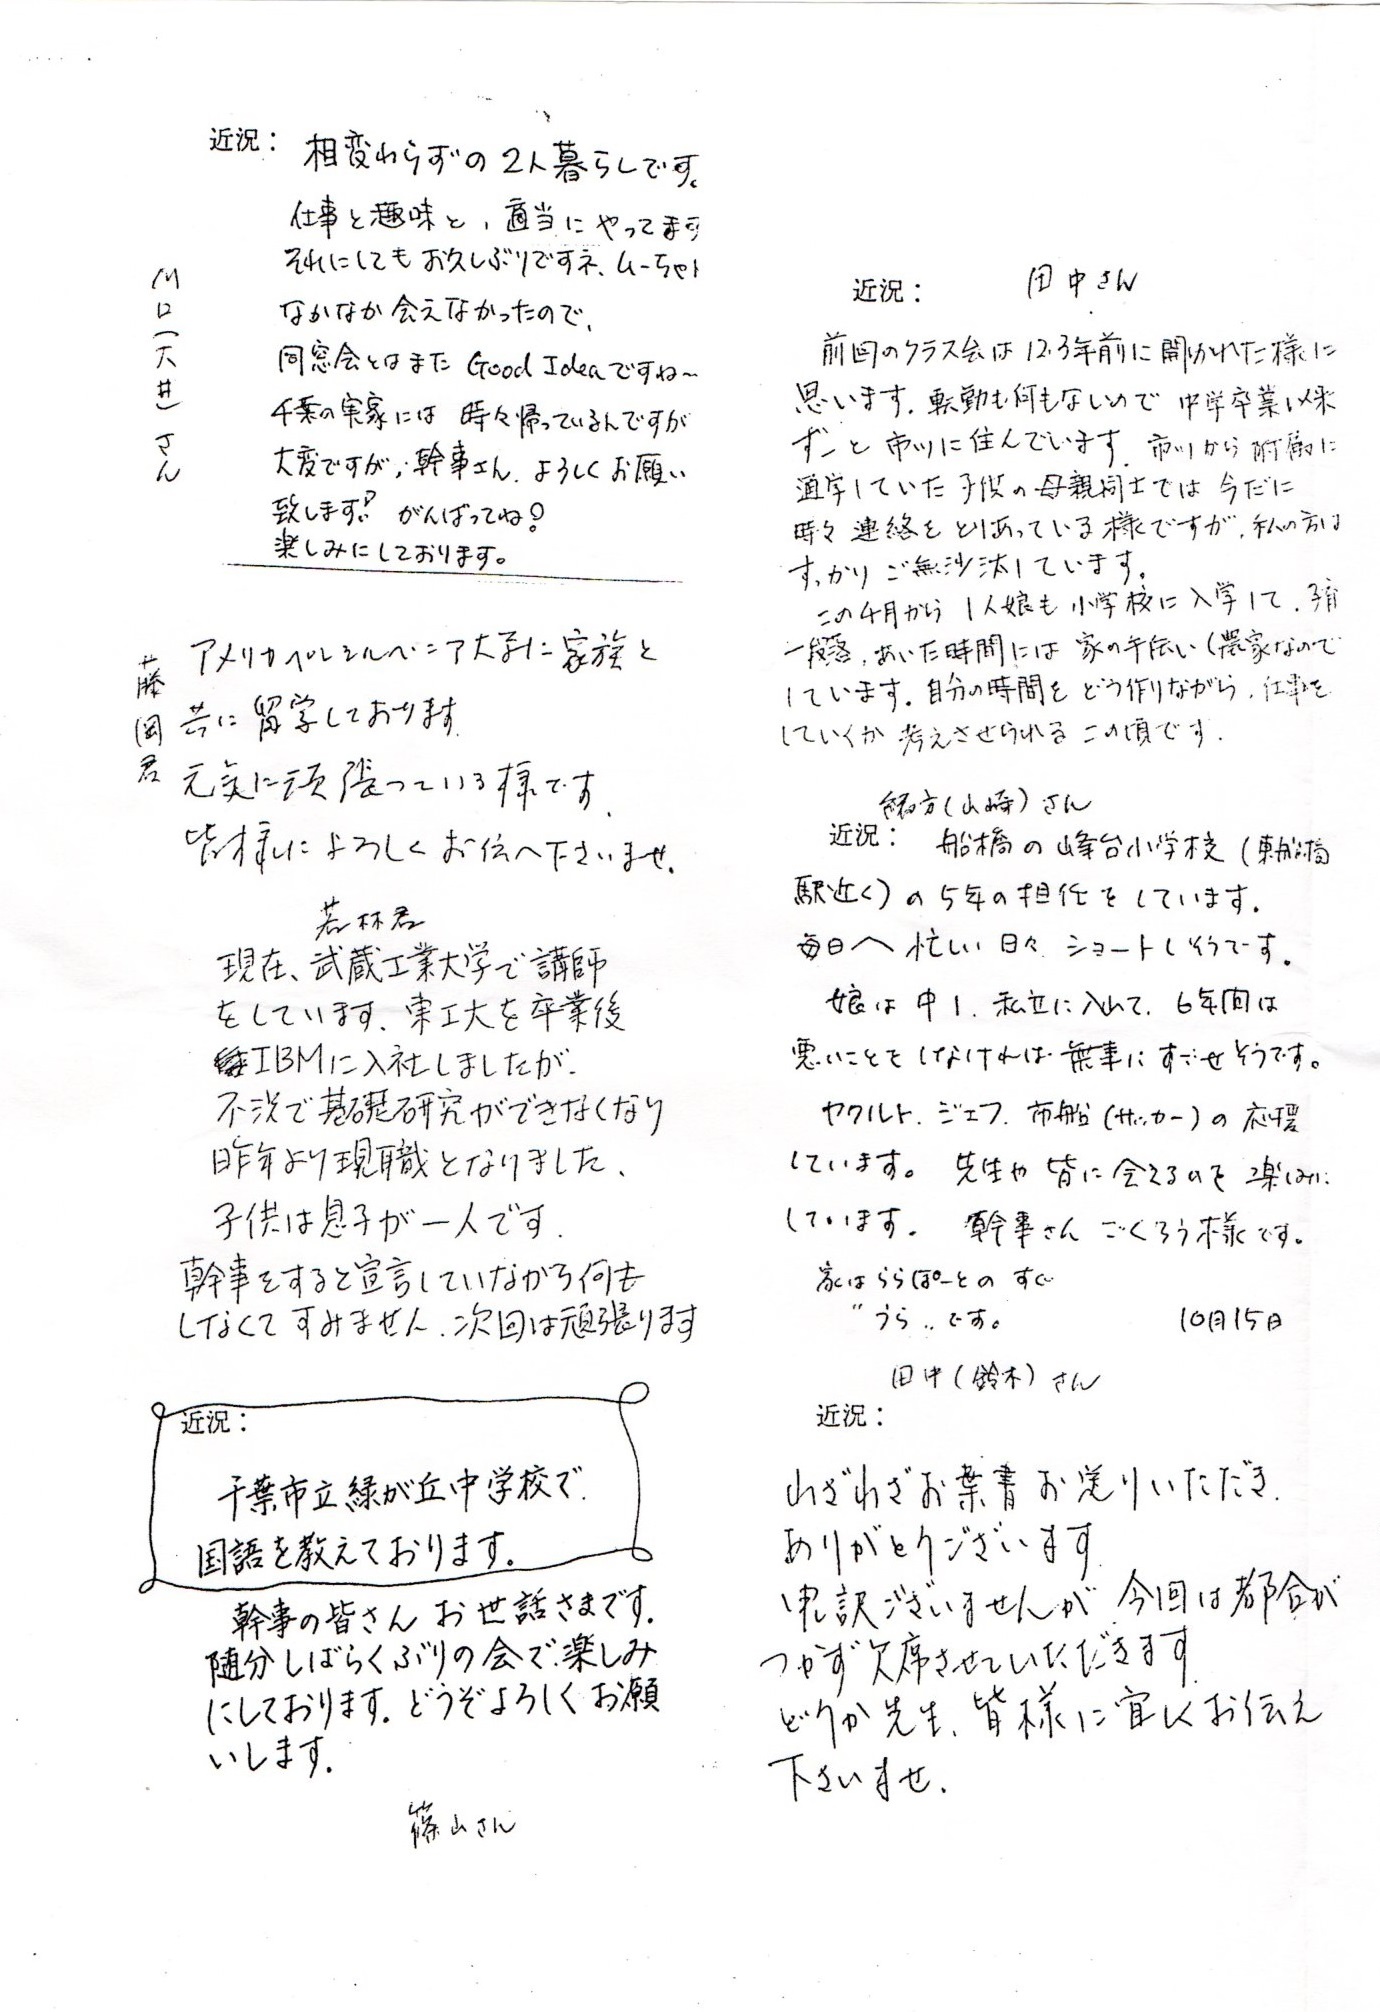 近況：
相変わらずの2人暮らしです。
仕事と趣味と、適当にやってます
それにしてもお久しぶりですネ、ムーちゃん
なかなか会えなかったので、
同窓会とはまた Good Ideaですね〜
千葉の実家には 時々帰っているんですが
大変ですが、幹事さん、よろしくお願い
致します。 がんばってね!
楽しみにしております。
川口(大井)さん
藤岡君
アメリカペンシルベニア大学に家族と
共に留学しております。
元気に頑張っている様です。
皆様によろしくお伝へ下さいませ。
若林君
現在、武蔵工業大学で講師
をしています。東工大を卒業後
IBMに入社しましたが、
不況で基礎研究ができなくなり
昨年より現職となりました、
子供は息子が一人です.
幹事をすると宣言していながら何も
しなくてすみません.次回は頑張ります
近況：
千葉市立緑が丘中学校で、
国語を教えております。
幹事の皆さん お世話さまです.
随分しばらくぶりの会で、楽しみ
にしております. どうぞよろしくお願
いします.
篠山さん
近況： 田中さん
前回のクラス会は12.3年前に開かれた様に
思います. 転勤も何もないので 中学卒業以来
ずーと市川に住んでいます. 市川から附属に
通学していた子供の母親同士では今だに
時々連絡をとりあっている様ですが、私の方は
すっかりご無沙汰しています。
この4月から1人娘も小学校に入学して、子育
一段落、あいた時間には家の手伝い(農家なので
しています. 自分の時間をどう作りながら、仕事を
していくか考えさせられるこの頃です.
緒方(山崎)さん
近況： 船橋の峰台小学校(東船橋
駅近く)の5年の担任をしています.
毎日 忙しい日々 ショートしそうです.
娘は中1. 私立に入れて、6年間は
悪いことをしなければ無事にすごせそうです。
ヤクルト、ジェフ、市船(サッカー)の応援
しています。 先生や皆に会えるのを楽しみに
しています。 幹事さん ごくろう様です。
家はららぽーとのすぐ
〃うら〃です。 10月15日
田中(鈴木)さん
近況：
わざわざお葉書お送りいただき、
ありがとうございます.
申し訳ございませんが 今回は都合が
つかず欠席させていただきます.
どうか先生、皆様に宜しくお伝え
下さいませ.